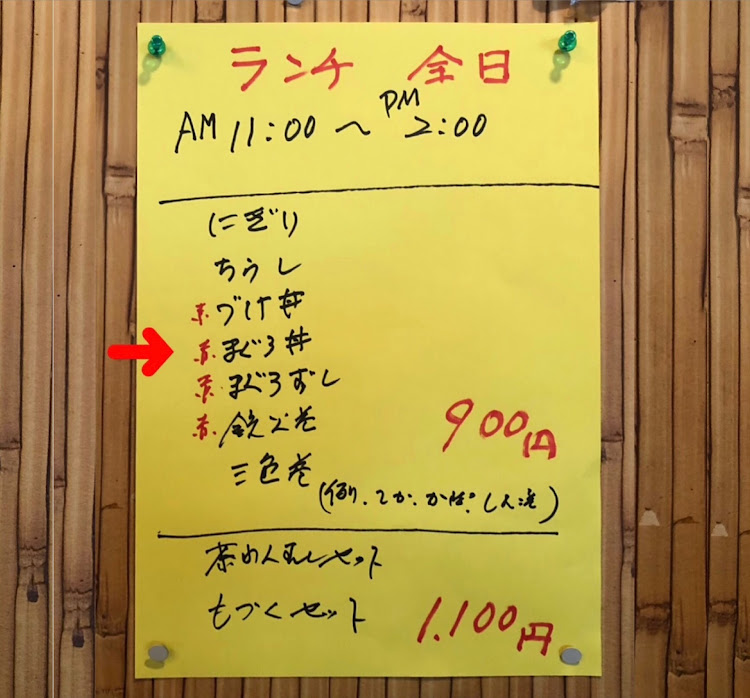 ランチ 全日
AM 11:00 〜 PM 2:00
にぎり
ちらし
づけ丼
まぐろ丼
まぐろずし
鉄火巻
三色巻
(例. てか. かっぱ. しん巻)
900円
茶わんむしセット
もづくセット
1.100円